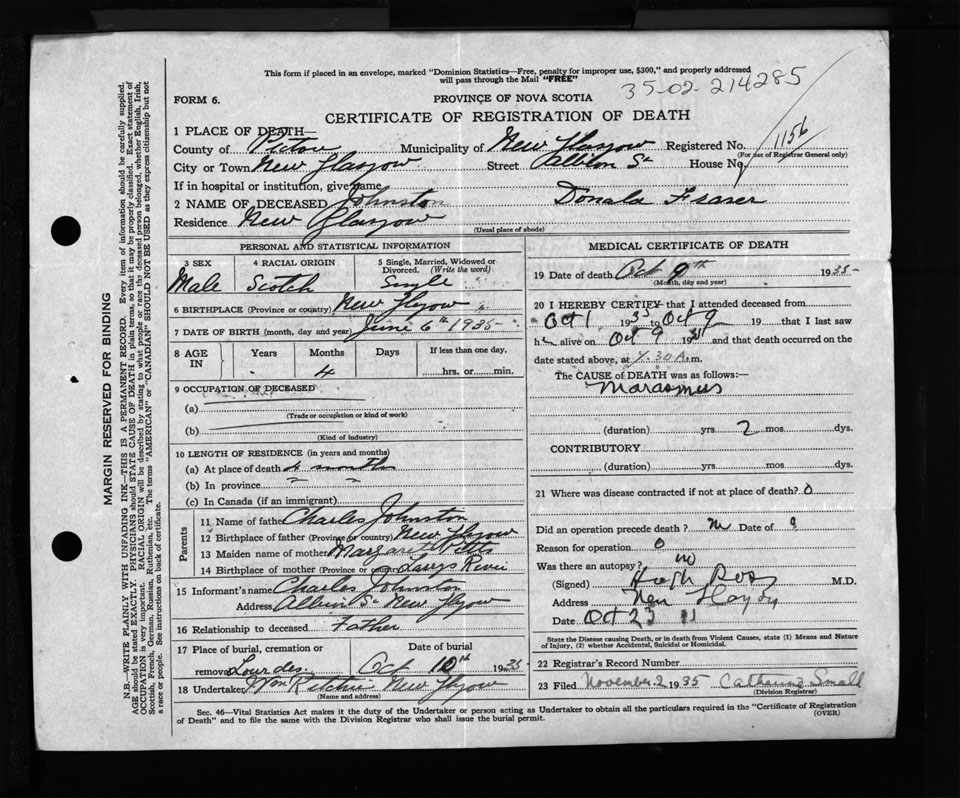 This form if placed in an envelope, marked "Dominion Statistics—Free, penalty for improper use, $300," and properly addressed
will pass through the Mail "FREE"
35-02-214285
FORM 6.
PROVINCE OF NOVA SCOTIA
CERTIFICATE OF REGISTRATION OF DEATH
1 PLACE OF DEATH—
County of Pictou Municipality of New Glasgow Registered No. 1156
(For use of Registrar General only)
City or Town New Glasgow Street Albion St House No.
If in hospital or institution, give name
2 NAME OF DECEASED Johnston Donald Fraser
Residence New Glasgow
(Usual place of abode)
PERSONAL AND STATISTICAL INFORMATION
3 SEX 4 RACIAL ORIGIN 5 Single, Married, Widowed or Divorced. (Write the word)
Male Scotch Single
6 BIRTHPLACE (Province or country) New Glgow
7 DATE OF BIRTH (month, day and year) June 6th 1935
8 AGE IN Years Months Days If less than one day,
4 hrs. or min.
9 OCCUPATION OF DECEASED
(a)
(Trade or occupation or kind of work)
(b)
(Kind of industry)
10 LENGTH OF RESIDENCE (in years and months)
(a) At place of death 4 months
(b) In province " "
(c) In Canada (if an immigrant)
Parents
11 Name of father Charles Johnston
12 Birthplace of father (Province or country) New Glgow
13 Maiden name of mother Margaret Pitts
14 Birthplace of mother (Province or country)
15 Informant's name Charles Johnston
Address Albion St New Glgow
16 Relationship to deceased Father
17 Place of burial, cremation or removal Lourdes Date of burial Oct 10th 1935
18 Undertaker Wm Ritchie New Glgow
(Name and address)
MEDICAL CERTIFICATE OF DEATH
19 Date of death Oct 9th 1935
(Month, day and year)
20 I HEREBY CERTIFY that I attended deceased from
Oct 1 1935 to Oct 9 19 that I last saw
h alive on Oct 9 19 and that death occurred on the
date stated above, at 7.30 A.m.
The CAUSE of DEATH was as follows:—
Marasmus
(duration) yrs 2 mos dys.
CONTRIBUTORY
(duration) yrs. mos. dys.
21 Where was disease contracted if not at place of death? 0
Did an operation precede death? Date of
Reason for operation 0
Was there an autopsy? no
(Signed) Hugh Ross M.D.
Address New
Date Oct 23
State the Disease causing Death, or in death from Violent Causes, state (1) Means and Nature
of Injury, (2) whether Accidental, Suicidal or Homicidal.
22 Registrar's Record Number
23 Filed November 2 1935 Catharine Small
(Division Registrar)
Sec. 46—Vital Statistics Act makes it the duty of the Undertaker or person acting as Undertaker to obtain all the particulars required in the "Certificate of Registration
of Death" and to file the same with the Division Registrar who shall issue the burial permit. (OVER)
MARGIN RESERVED FOR BINDING
N.B.—WRITE PLAINLY WITH UNFADING INK—THIS IS A PERMANENT RECORD. Every item of information should be carefully supplied.
AGE should be stated EXACTLY. PHYSICIANS should STATE CAUSE OF DEATH in plain terms, so that it may be properly classified. Exact statement of
OCCUPATION is very important. RACIAL ORIGIN will be described by stating to what people or race the deceased person belonged, whether English, Irish,
Scottish, French, German, Russian, Ruthenian, etc. The terms "AMERICAN" or "CANADIAN" SHOULD NOT BE USED as they express citizenship but not
a race or people. See instructions on back of certificate.